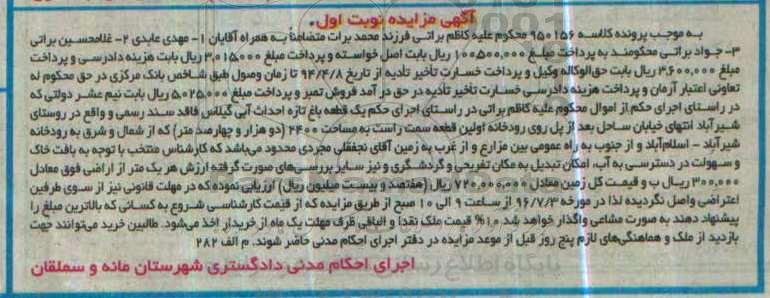 آگهی مزایده نوبت اول.
به موجب پرونده کلاسه ۹۵۰۱۵۶ محکوم علیه کاظم براتی فرزند محمد برات متضامناً به همراه آقایان ۱- مهدی عابدی ۲- غلامحسین براتی
۳- جواد براتی محکومند به پرداخت مبلغ ۱۰۰٬۵۰۰٬۰۰۰ ریال بابت اصل خواسته و پرداخت مبلغ ۳٬۰۱۵٬۰۰۰ ریال بابت هزینه دادرسی و پرداخت
مبلغ ۳٬۶۰۰٬۰۰۰ ریال بابت حق‌الوکاله وکیل و پرداخت خسارت تأخیر تأدیه از تاریخ ۹۴/۴/۸ تا زمان وصول طبق شاخص بانک مرکزی در حق محکوم له
تعاونی اعتبار آرمان و پرداخت هزینه دادرسی خسارت تأخیر تأدیه در حق در آمد فروش تمبر و پرداخت مبلغ ۵٬۰۲۵٬۰۰۰ ریال بابت نیم عشر دولتی که
در راستای اجرای حکم از اموال محکوم علیه کاظم براتی در راستای اجرای حکم یک قطعه باغ تازه احداث آبی گیلاس فاقد سند رسمی و واقع در روستای
شیرآباد انتهای خیابان ساحل بعد از پل روی رودخانه اولین قطعه سمت راست به مساحت ۲۴۰۰ (دو هزار و چهارصد متر) که از شمال و شرق به رودخانه
شیرآباد - اسلام‌آباد و از جنوب به راه عمومی بین مزارع و از غرب به زمین آقای نجفقلی مجردی محدود می‌باشد که کارشناس منتخب با توجه به بافت خاک
و سهولت در دسترسی به آب، امکان تبدیل به مکان تفریحی و گردشگری و نیز سایر بررسی‌های صورت گرفته ارزش هر یک متر از اراضی فوق معادل
۳۰۰٬۰۰۰ ریال ب و قیمت کل زمین معادل ۷۲۰٬۰۰۰٬۰۰۰ ریال (هفتصد و بیست میلیون ریال) ارزیابی نموده که در مهلت قانونی نیز از سوی طرفین
اعتراضی واصل نگردیده لذا در مورخه ۹۶/۷/۳ از ساعت ۹ الی ۱۰ صبح از طریق مزایده که از قیمت کارشناسی شروع به کسانی که بالاترین مبلغ را
پیشنهاد دهند به صورت مشاعی واگذار خواهد شد ۱۰٪ قیمت ملک نقداً و الباقی ظرف مهلت یک ماه از خریدار اخذ می‌شود. طالبین خرید می‌توانند جهت
بازدید از ملک و هماهنگی‌های لازم پنج روز قبل از موعد مزایده در دفتر اجرای احکام مدنی حاضر شوند. م الف ۲۸۲
اجرای احکام مدنی دادگستری شهرستان مانه و سملقان